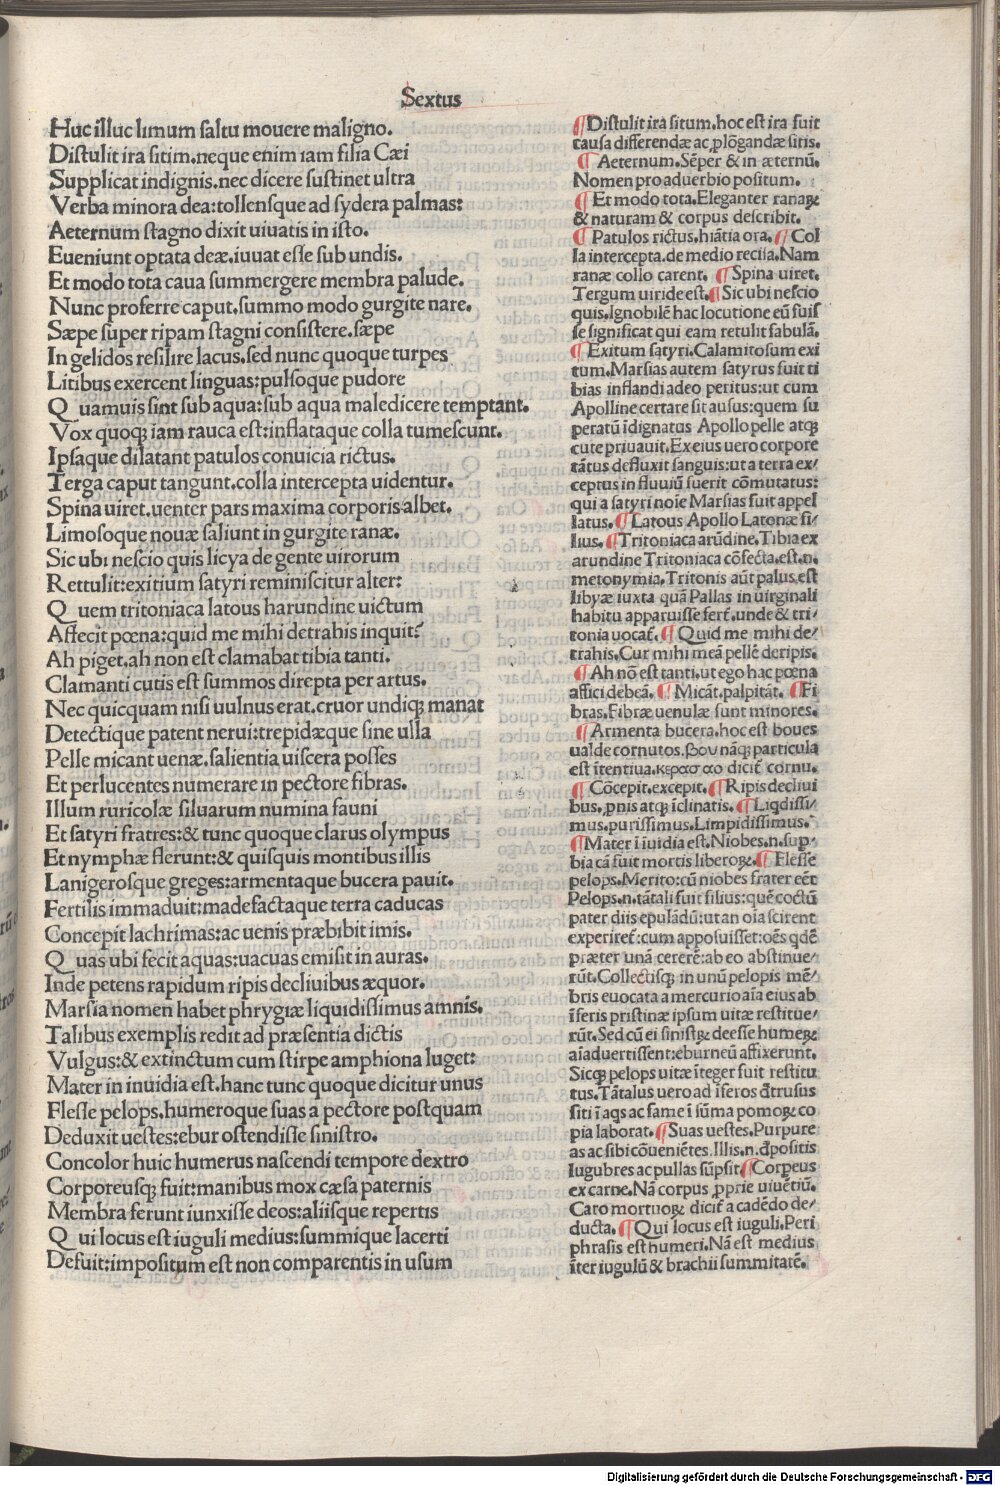 Sextus
Huc illuc limum saltu mouere maligno.
Distulit ira sitim.neque enim iam filia Cæi
Supplicat indignis.nec dicere sustinet ultra
Verba minora dea:tollensque ad sydera palmas:
Aeternum stagno dixit uiuatis in isto.
Eueniunt optata deæ.iuuat esse sub undis.
Et modo tota caua summergere membra palude.
Nunc proferre caput.summo modo gurgite nare.
Sæpe super ripam stagni consistere.sæpe
In gelidos resilire lacus.sed nunc quoque turpes
Litibus exercent linguas:pulsoque pudore
Q uamuis sint sub aqua:sub aqua maledicere temptant.
Vox quoqꝫ iam rauca est:inflataque colla tumescunt.
Ipsaque dilatant patulos conuicia rictus.
Terga caput tangunt.colla intercepta uidentur.
Spina uiret.uenter pars maxima corporis albet.
Limosoque nouæ saliunt in gurgite ranæ.
Sic ubi nescio quis licya de gente uirorum
Rettulit:exitium satyri reminiscitur alter:
Q uem tritoniaca latous harundine uictum
Affecit pœna:quid me mihi detrahis inquit?
Ah piget.ah non est clamabat tibia tanti.
Clamanti cutis est summos direpta per artus.
Nec quicquam nisi uulnus erat.cruor undiqꝫ manat
Detectique patent nerui:trepidæque sine ulla
Pelle micant uenæ.salientia uiscera posses
Et perlucentes numerare in pectore fibras.
Illum ruricolæ siluarum numina fauni
Et satyri fratres:& tunc quoque clarus olympus
Et nymphæ flerunt:& quisquis montibus illis
Lanigerosque greges:armentaque bucera pauit.
Fertilis immaduit:madefactaque terra caducas
Concepit lachrimas:ac uenis præbibit imis.
Q uas ubi fecit aquas:uacuas emisit in auras.
Inde petens rapidum ripis decliuibus æquor.
Marsia nomen habet phrygiæ liquidissimus amnis.
Talibus exemplis redit ad præsentia dictis
Vulgus:& extinctum cum stirpe amphiona luget:
Mater in inuidia est.hanc tunc quoque dicitur unus
Flesse pelops.humeroque suas a pectore postquam
Deduxit uestes:ebur ostendisse sinistro.
Concolor huic humerus nascendi tempore dextro
Corporeusqꝫ fuit:manibus mox cæsa paternis
Membra ferunt iunxisse deos:aliisque repertis
Q ui locus est iuguli medius:summique lacerti
Defuit:impositum est non comparentis in usum
¶Distulit ira sitim.hoc est ira fuit
causa differendæ ac ꝓlōgandæ sitis.
¶ Aeternum.Sēper & in æternū.
Nomen pro aduerbio positum.
¶ Et modo tota.Eleganter ranaꝝ
& naturam & corpus describit.
¶ Patulos rictus.hiātia ora.¶ Col
la intercepta.de medio recisa.Nam
ranæ collo carent. ¶ Spina uiret.
Tergum uiride est.¶Sic ubi nescio
quis.Ignobilē hac locutione eū fuis
se significat qui eam retulit fabulā.
¶Exitum satyri.Calamitosum exi
tum.Marsias autem satyrus fuit ti
bias inflandi adeo peritus:ut cum
Apolline certare sit ausus:quem su
peratū īdignatus Apollo pelle atqꝫ
cute priuauit.Ex eius uero corpore
tātus defluxit sanguis:ut a terra ex/
ceptus in fluuiū fuerit cōmutatus:
qui a satyri noīe Marsias fuit appel
latus.¶Latous Apollo Latonæ fi/
lius.¶Tritoniaca arūdine.Tibia ex
arundine Tritoniaca cōfecta.est.n.
metonymia.Tritonis aūt palus est
libyæ iuxta quā Pallas in uirginali
habitu apparuisse fert̄.unde & tri/
tonia uocat̄.¶Quid me mihi de/
trahis.Cur mihi meā pellē deripis.
¶Ah nō est tanti.ut ego hac pœna
affici debeā.¶ Micāt.palpitāt. ¶Fi
bras.Fibræ uenulæ sunt minores.
¶Armenta bucera.hoc est boues
ualde cornutos.βου nāqꝫ particula
est ītentiua.κερασ αο dicit̄ cornu.
¶Cōcepit.excepit.¶Ripis decliui
bus.ꝓnis atqꝫ īclinatis.¶Liqdissi/
mus.purissimus.Limpidissimus.
¶Mater ī īuidia est.Niobes.n.suꝑ/
bia cā fuit mortis liberoꝝ.¶ Flesse
pelops.Merito:cū niobes frater eēt
Pelops.n.tātali fuit filius:quē coctū
pater diis epulādū:ut an oīa scirent
experiret̄:cum apposuisset:oēs qdē
præter unā cererē:ab eo abstinue/
rūt.Collectisqꝫ in unū pelopis mē/
bris euocata a mercurio aīa eius ab
īferis pristinæ ipsum uitæ restitue/
rūt.Sed cū ei sinistꝝ deesse humeꝝ
aīaduertissent:eburneū affixerunt.
Sicqꝫ pelops uitæ īteger fuit restitu
tus.Tātalus uero ad īferos dtrusus
siti ī aqs ac fame ī sūma pomoꝝ co
pia laborat.¶Suas uestes.Purpure
as ac sibi cōueniētes.Illis.n.dpositis
lugubres ac pullas sūpsit.¶Corpeus
ex carne.Nā corpus ꝓprie uiuētiū.
Caro mortuoꝝ dicit̄ a cadēdo de/
ducta.¶Qui locus est iuguli.Peri
phrasis est humeri.Nā est medius
īter iugulū & brachii summitatē.
Digitalisierung gefördert durch die Deutsche Forschungsgemeinschaft - DFG